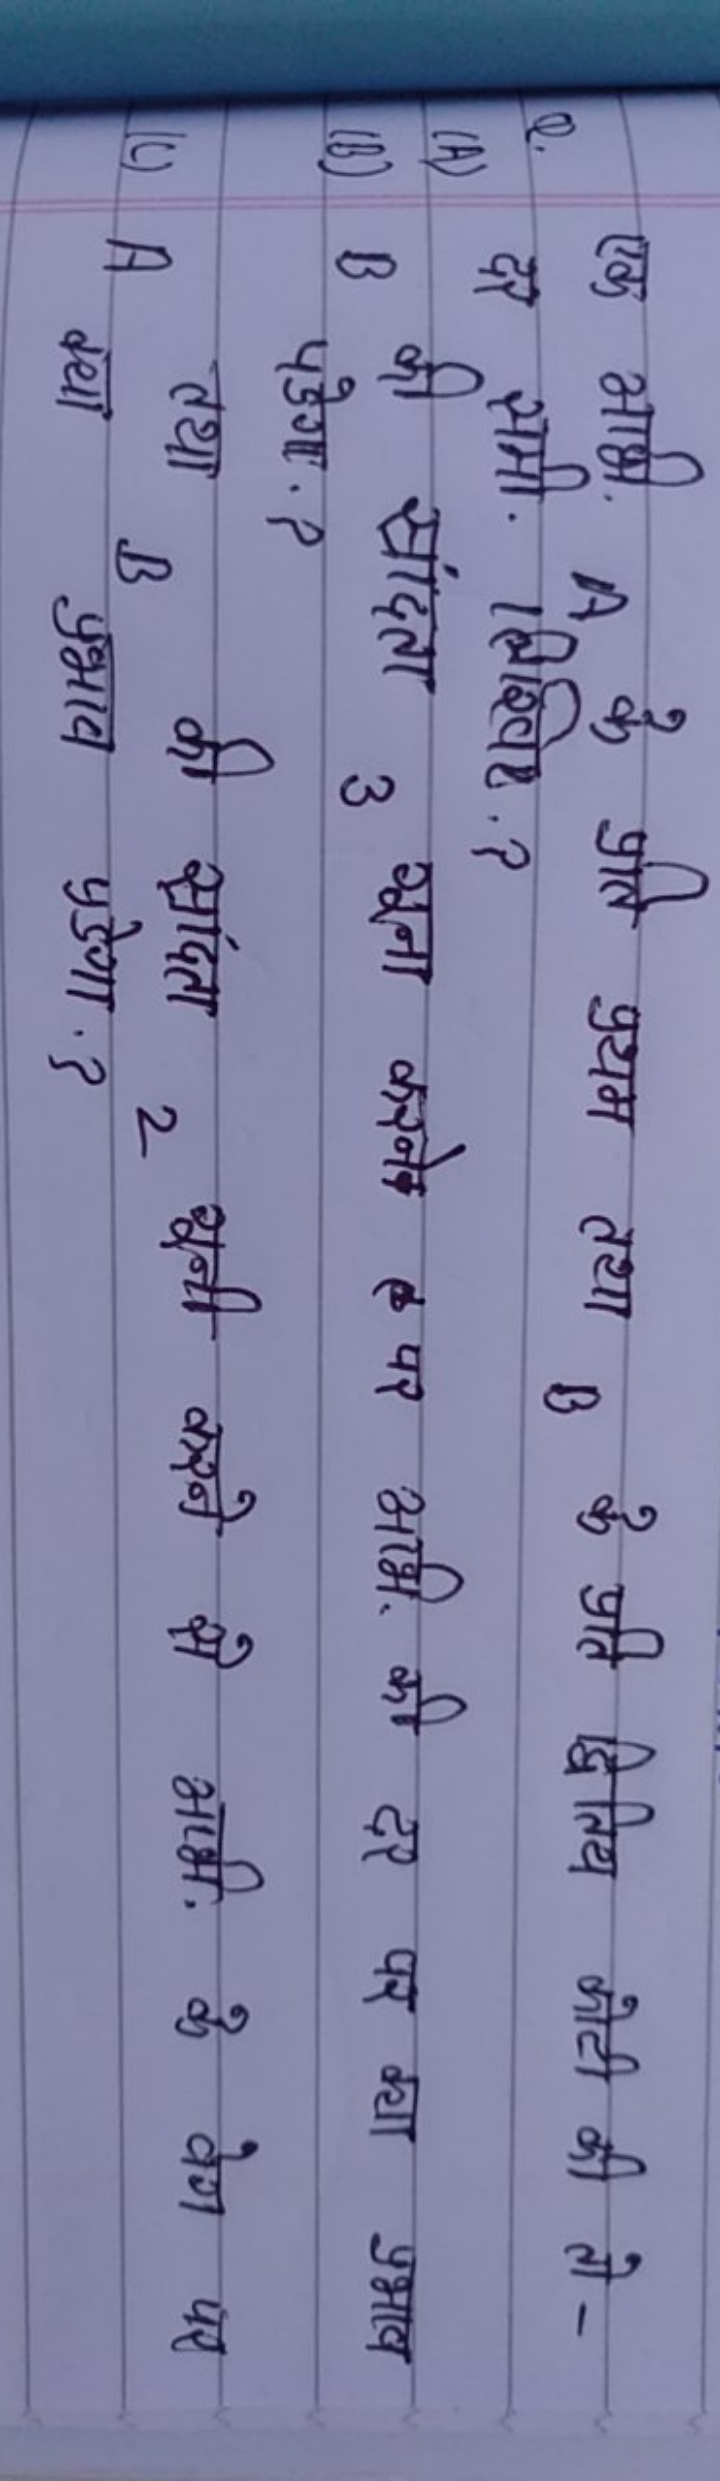 Q. एक अभि. A के प्रति प्रथम तथा B के प्रति द्वितिय कोटी की तो -
(A) दर समी. लिखिए. ?
(B) B की सांद्रता 3 गुना करने पर अभि. की दर पर क्या प्रभाव
पड़ेगा. ?
(C) A तथा B की सांद्रता 2 गुनी करने से अभि. के वेग पर
क्या प्रभाव पड़ेगा. ?